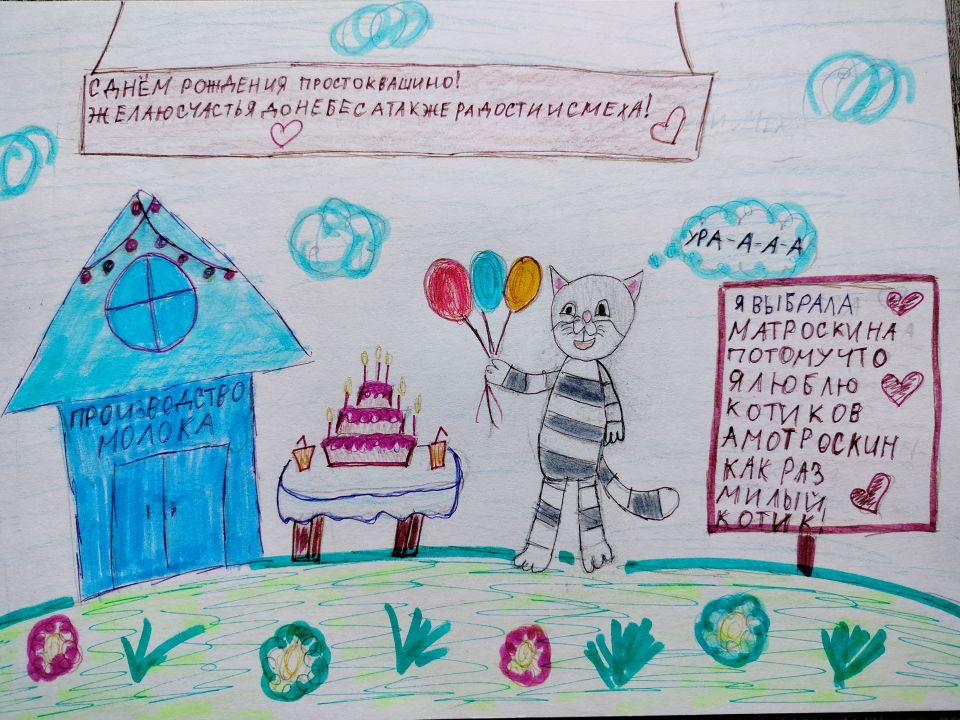 С ДНЁМ РОЖДЕНИЯ ПРОСТОКВАШИНО!
ЖЕЛАЮ СЧАСТЬЯ ДО НЕБЕС А ТАКЖЕ РАДОСТИ И СМЕХА!
УРА-А-А-А
Я ВЫБРАЛА
МАТРОСКИНА
ПОТОМУ ЧТО
Я ЛЮБЛЮ
КОТИКОВ
А МОТРОСКИН
КАК РАЗ
МИЛЫЙ
КОТИК!
ПРОИЗВОДСТВО
МОЛОКА